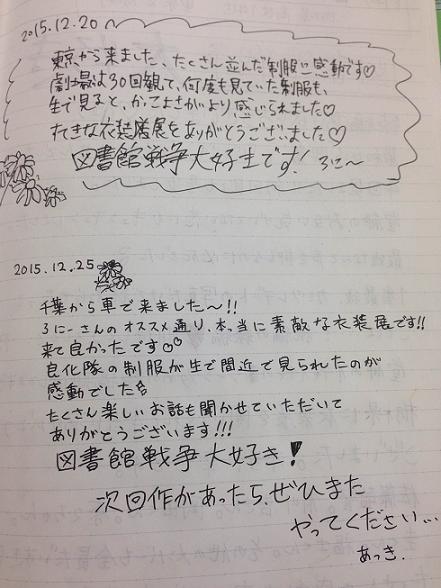 2015.12.20
東京から来ました、たくさん並んだ制服に感動です♡
劇場は30回観て、何度も見ていた制服も、
生で見ると、かっこよさがより感じられました♡
すてきな衣装展をありがとうございました♡
図書館戦争大好きです! ろに〜
2015.12.25
千葉から車で来ました〜!!
ろにーさんのオススメ通り、本当に素敵な衣装展です!!
来て良かったです♡♡
良化隊の制服が生で間近で見られたのが
感動でした
たくさん楽しいお話も聞かせていただいて
ありがとうございます!!!
図書館戦争大好き!
次回作があったら、ぜひまた
やってください…
あっき.